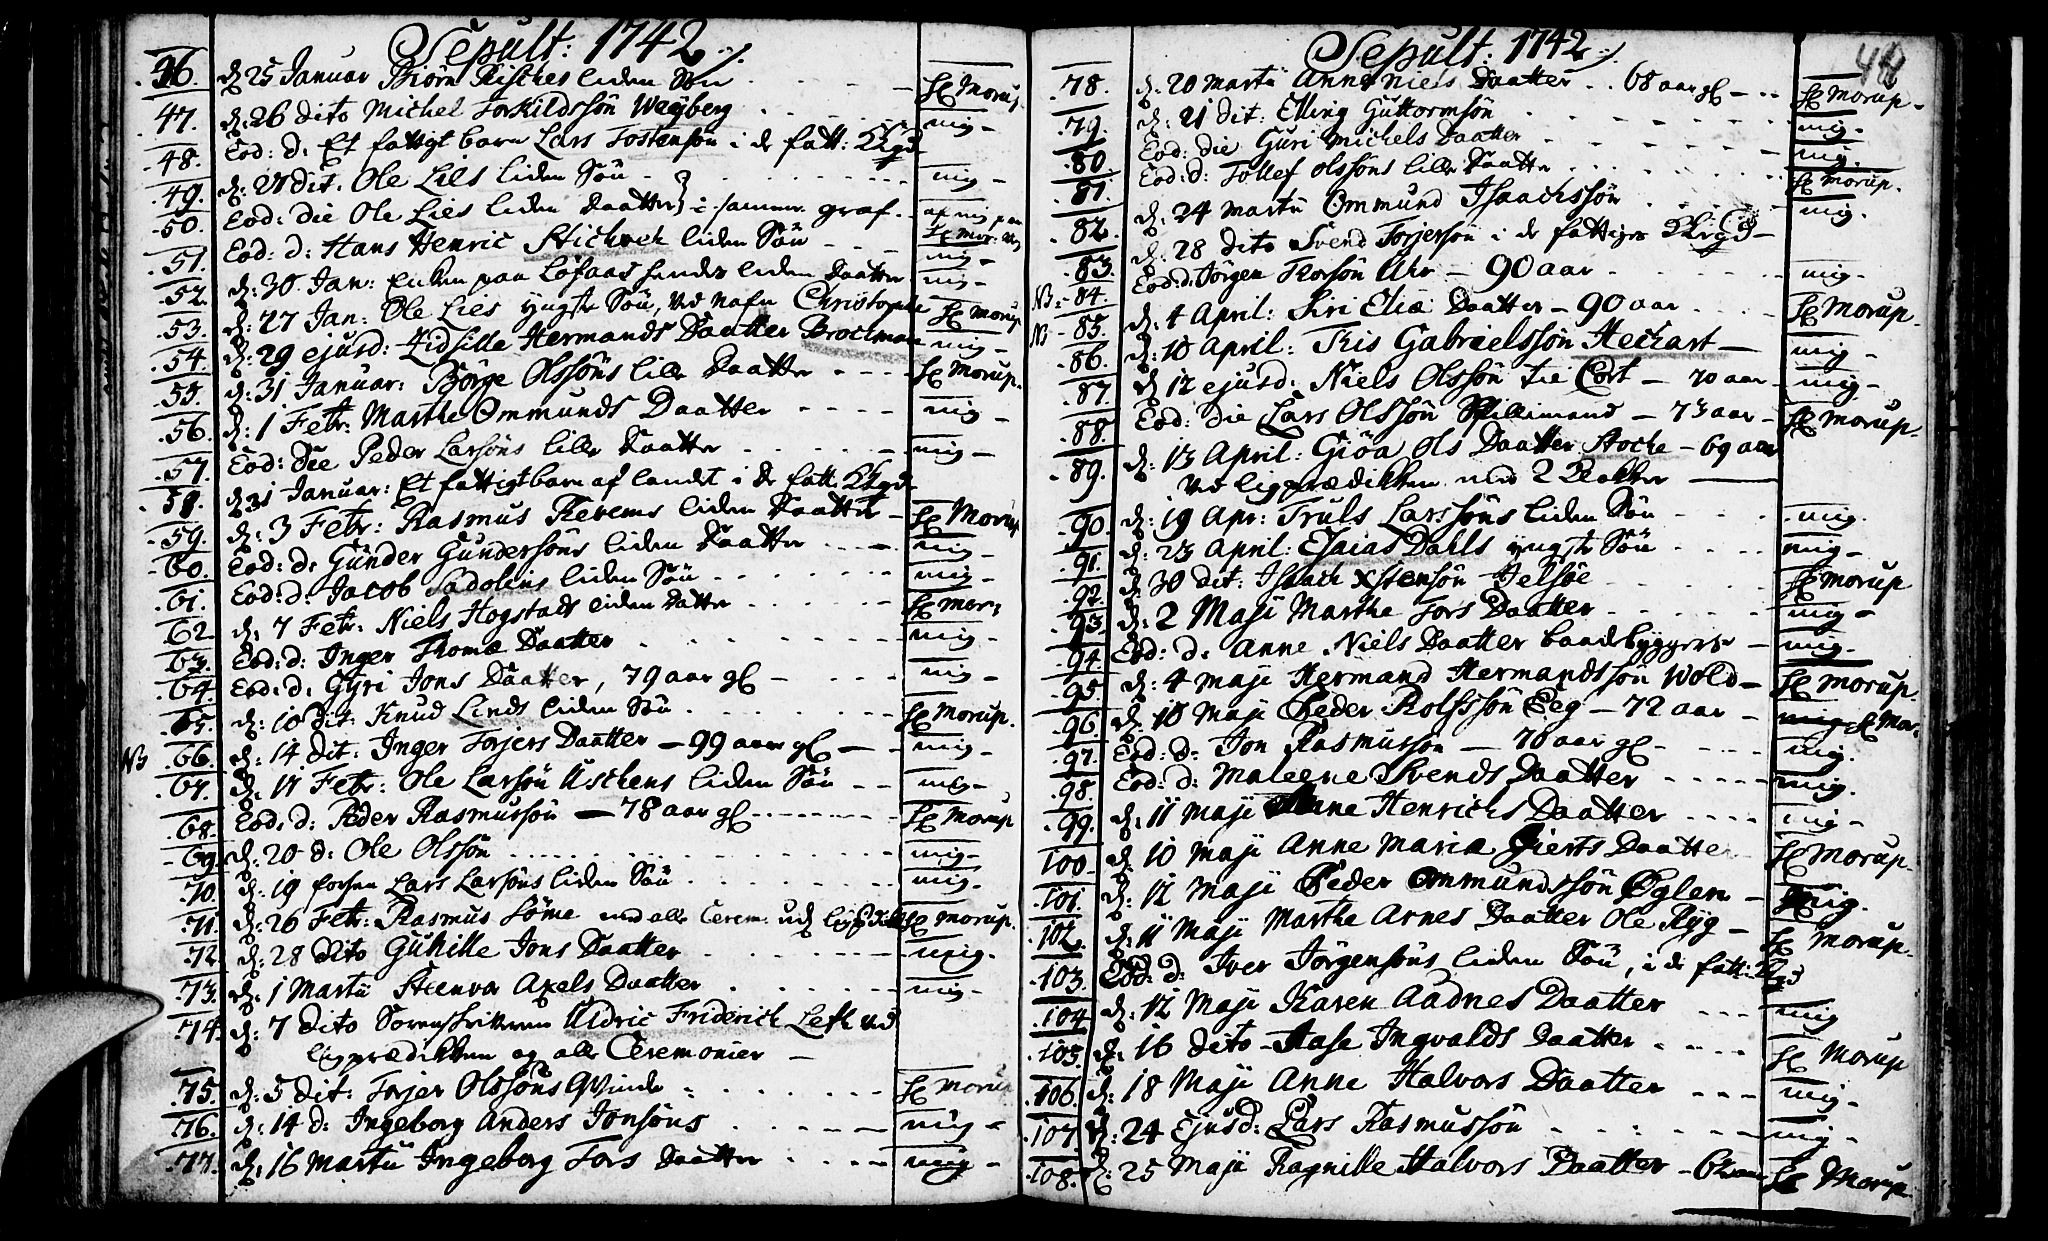 Sepult: 1742
46. d: 25 Januar Biørn Kisches liden Søn - Hr Morup
47. d: 26 dito Michel Torkildssøn Wegberg - mig
48. Eod: d: Et fattigt barn Lars Tostensøn i de fatt: Kkgd
49. d: 27 dit: Ole Lies liden Søn - mig
50. Eod: die Ole Lies liden Daatter i samme graf
51. Eod: d: Hans Henric liden Søn - mig
52. d: 30 Jan: Enken paa Løfaas hendes liden Daatter - mig
53. d: 27 Jan: Ole Lies yngste Søn, ved nafn Christopher - Hr Morup
54. d: 29 ejusd: Zidsille Hermands Daatter Brockman - mig
55. d: 31 Januar: Børge Olssøns lille Daatter - Hr Morup
56. d: 1 Febr: Marthe Ommunds Daatter - mig
57. Eod: die Peder Larsøns lille Daatter - mig
58. d: 31 Januar: Et fattigt barn af landet i de fatt: Kkgd
59. d: 3 Febr: Rasmus liden Daatter - Hr Morup
60. Eod: d: Gunder Gundersøns liden Daatter - mig
61. Eod: d: Jacob Sadolins liden Søn - mig
62. d: 7 Febr: Niels Hogstads liden Datter - Hr Mor:
63. Eod: d: Inger Thomæ Daatter - mig
64. Eod: d: Gyri Jons Daatter, 79 aar gl - mig
65. d: 10 dit: Knud Linds liden Søn - Hr Morup.
NB 66. d: 14 dit: Inger Torjers Daatter - 99 aar gl - mig
67. d: 17 Febr: Ole Larsøn Aschens liden Søn - mig
68. Eod: d: Peder Rasmussøn - 78 aar gl - Hr Morup
69. d: 20 d: Ole Olssøn - mig
70. d: 19 Lars Larsøns liden Søn - mig
71. d: 26 Febr: Rasmus Sôme med alle Cerem: - Hr Morup.
72. d: 28 dito Guhille Jons Daatter - mig.
73. d: 1 Martii Steenvor Axels Daatter - mig
74. d: 7 dito Sorenskriveren Uldric Friderich Leth ved
ligprædikken og alle Ceremonier
75. d: 5 dit: Torjer Olssøns Qvinde - Hr Morup
76. d: 14 d: Ingeborg Anders Jonsøns - mig
77. d: 16 Martii Ingeborg Tors Daatter - mig
Sepult: 1742
44
78. d: 20 Martii Anne Niels Daatter - 68 aar gl - Hr Morup
79. d: 21 dit: Elling Guttormsøn - mig
80. Eod: die Guri Michels Daatter - mig.
81. Eod: d: Tollef Olssøns lille Daatter - Hr Morup.
82. d: 24 Martii Ommund Isaachssøn - mig.
83. d: 28 dito Svend Torjersøn i de fattiges Kkrgd
NB 84. Eod: d: Jørgen Thorsøn Uhr - 90 aar - mig
NB 85. d: 4 April: Siri Eliæ Daatter - 90 aar - Hr Morup.
86. d: 10 April: Tris Gabrielssøn Heckart - mig
87. d: 12 ejusd: Niels Olssøn - 70 aar - mig
88. Eod: die Lars Olssøn Spillemand - 73 aar - Hr Morup.
89. d: 13 April: Giôa Ols Daatter - 69 aar
ved ligprædikken med 2 Klokker
90. d: 19 Apr: Truls Larssøns liden Søn - mig.
91. d: 23 April: Esaias Dahls yngste Søn - mig
92. d: 30 dit: Isaach Xstensøn Jelsøe - Hr Morup
93. d: 2 Maji Marthe Tors Daatter - mig
94. Eod: d: Anne Niels Daatter baadbyggers - mig.
95. d: 4 Maji Hermand Hermandssøn Wold - Hr Morup.
96. d: 10 Maji Peder Rolfssøn Eeg - 72 aar - mig Hr Mor:
97. Eod: d: Jon Rasmussøn - 70 aar gl - mig.
98. Eod: d: Maleene Svends Daatter - mig.
99. d: 11 Maji Anne Henrichs Daatter - mig
100. d: 10 Maji Anne Maria Gierts Daatter - Hr Morup.
101. d: 12 Maji Peder Ommundssøn - mig.
102. d: 11 Maji Marthe Arnes Daatter Ole Ryg - Hr Morup.
103. Eod: d: Iver Jørgensøns liden Søn, i de fatt: Kkgd
104. d: 12 Maji Karen Aadnes Daatter - mig
105. d: 16 dito Aase Ingvalds Daatter - Hr Morup
106. d: 18 Maji Anne Halvors Daatter - mig
107. d: 24 Ejusd: Lars Rasmussøn - mig
108. d: 25 Maji Ragnille Halvors Daatter - Hr Morup.